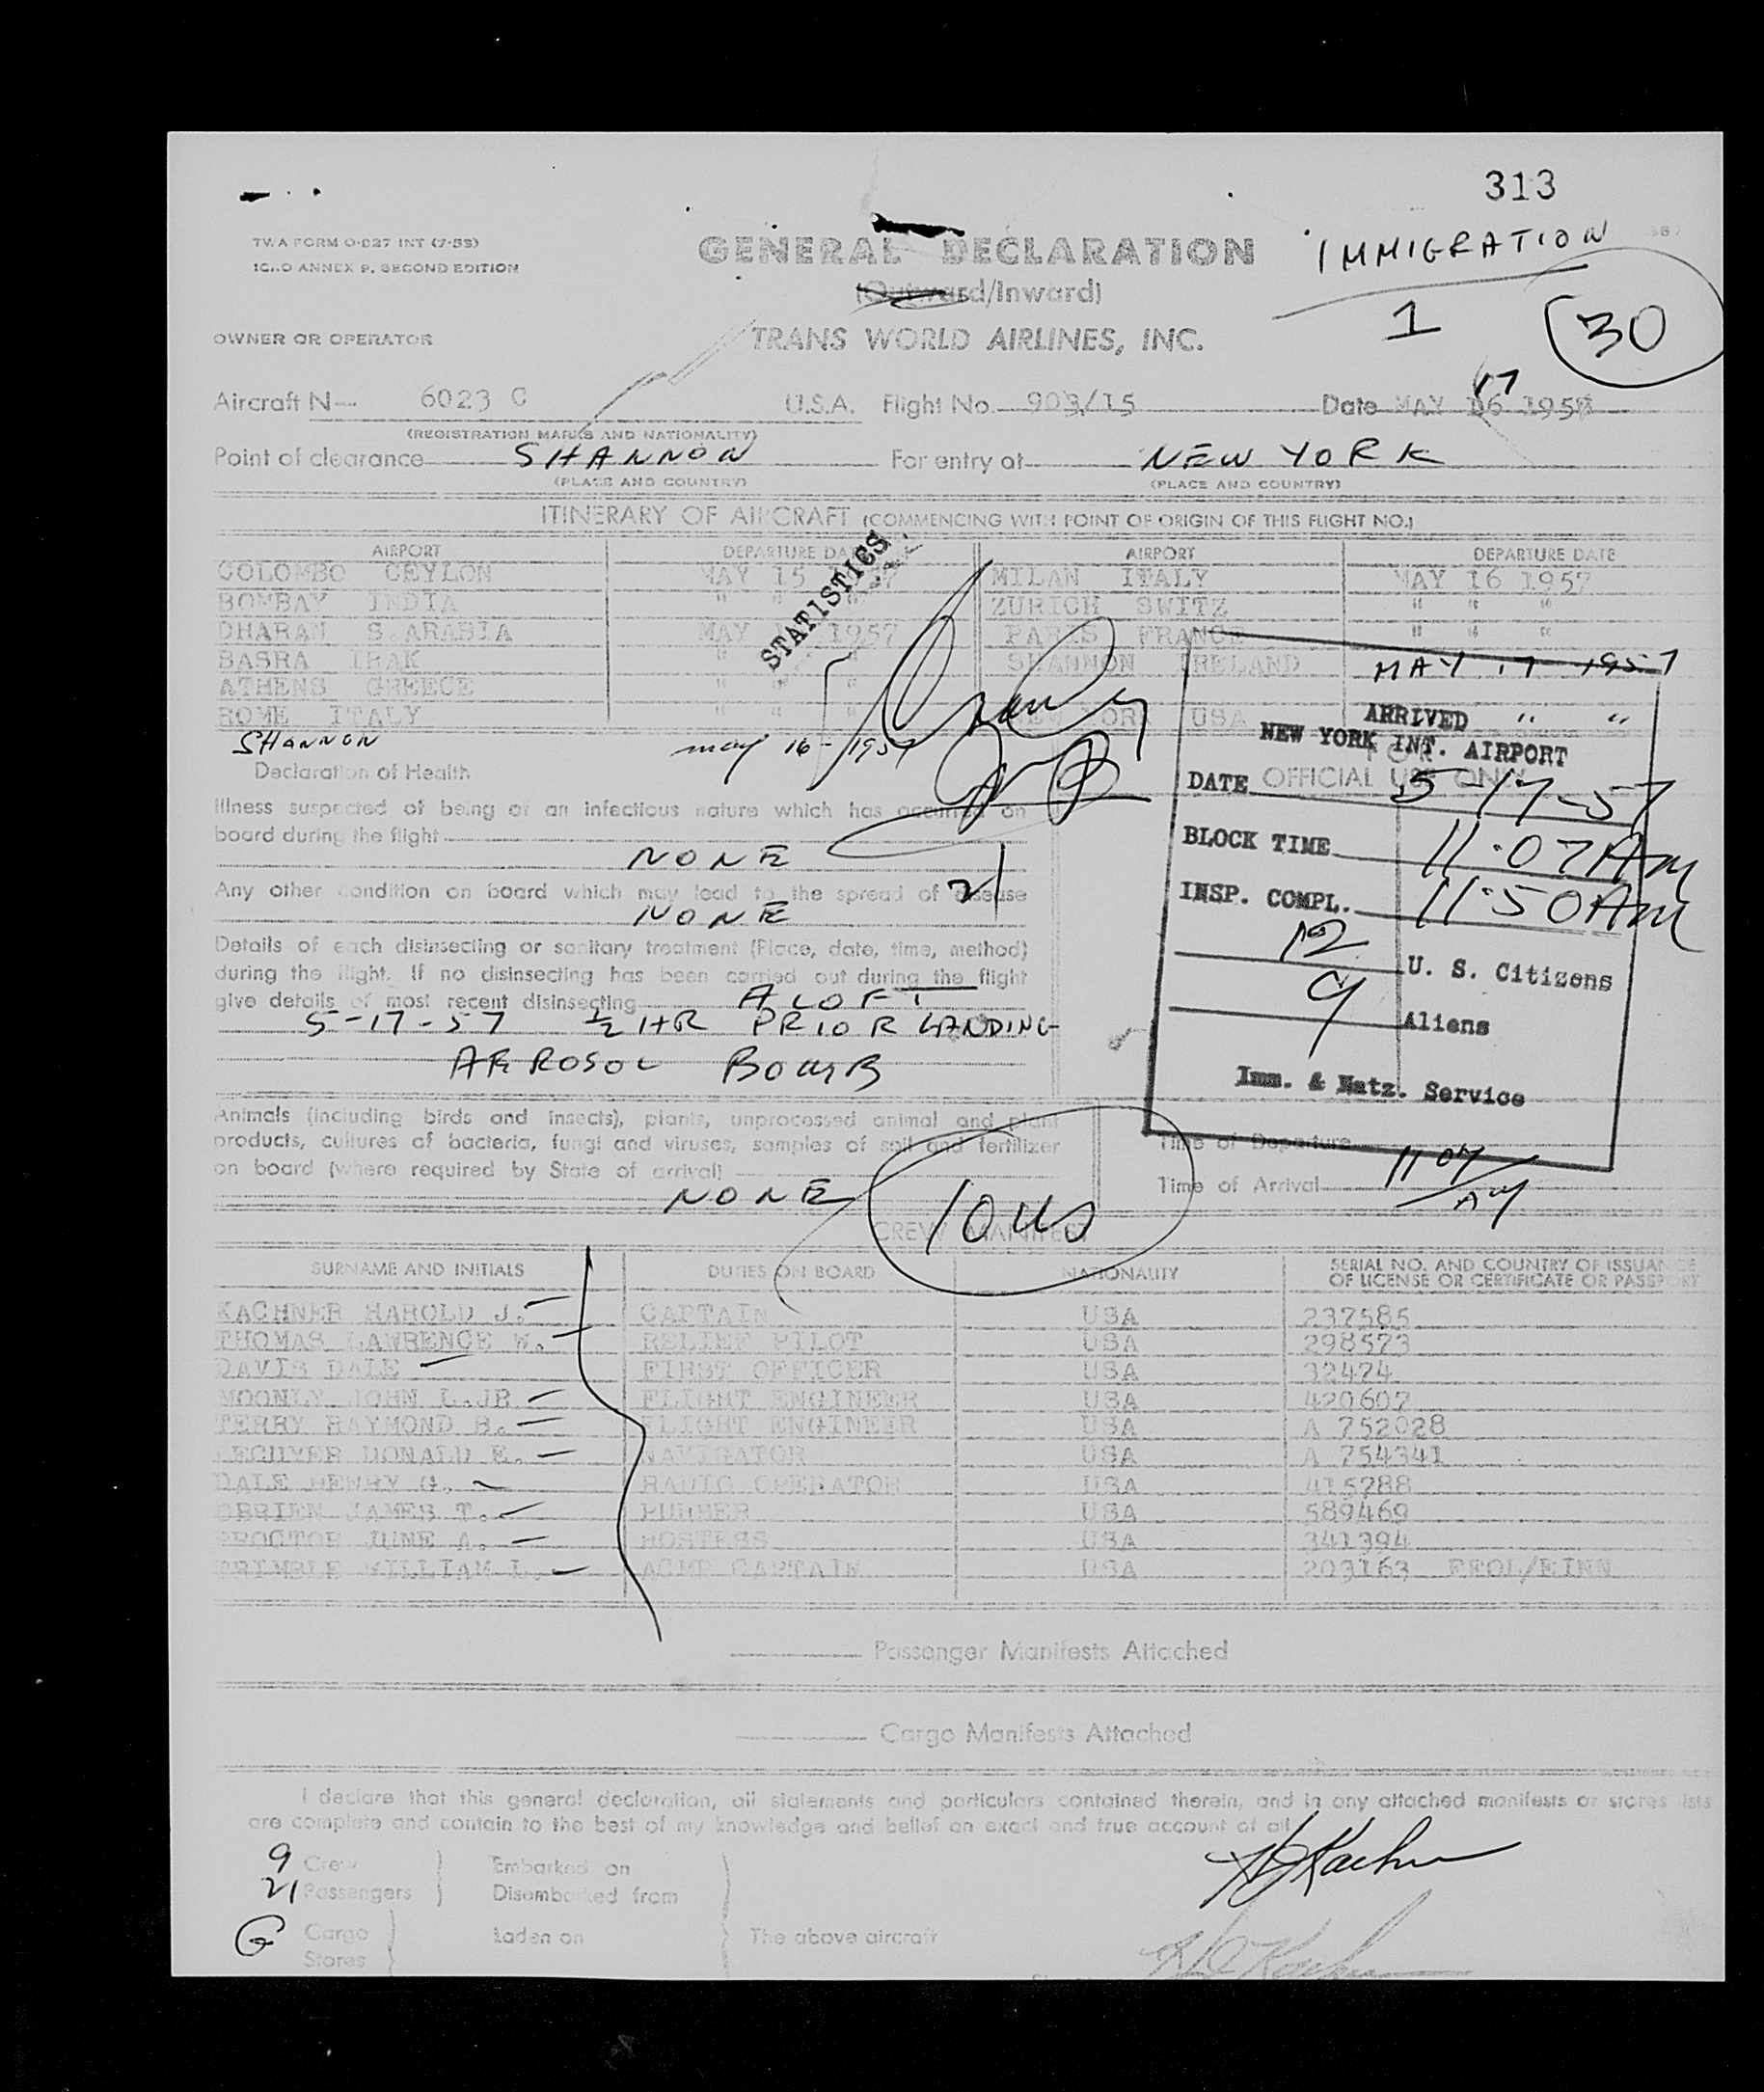 313
TWA FORM O-827 INT (7-53)
ICAO ANNEX 9, SECOND EDITION
GENERAL DECLARATION
IMMIGRATION
(Outward/Inward)
1
30
OWNER OR OPERATOR
TRANS WORLD AIRLINES, INC.
17
Aircraft N— 6023 C U.S.A. Flight No. 903/15 Date MAY 16 1957
(REGISTRATION MARKS AND NATIONALITY)
Point of clearance SHANNON For entry at NEW YORK
(PLACE AND COUNTRY) (PLACE AND COUNTRY)
ITINERARY OF AIRCRAFT (COMMENCING WITH POINT OF ORIGIN OF THIS FLIGHT NO.)
AIRPORT DEPARTURE DATE AIRPORT DEPARTURE DATE
STATISTICS
COLOMBO CEYLON MAY 15 1957 MILAN ITALY MAY 16 1957
BOMBAY INDIA " " " ZURICH SWITZ " " "
DHARAN S.ARABIA MAY 1957 PARIS FRANCE " " "
BASRA IRAK " " " SHANNON IRELAND MAY 17 1957
ATHENS GREECE " " "
ROME ITALY " " " NEW YORK USA " "
SHANNON may 16 - 1957
ARRIVED
NEW YORK INT. AIRPORT
FOR
OFFICIAL USE ONLY
DATE 5-17-57
BLOCK TIME 11:07 AM
INSP. COMPL. 11:50 AM
12 U. S. Citizens
9 Aliens
Imm. & Natz. Service
Declaration of Health
Illness suspected of being of an infectious nature which has occurred on
board during the flight
NONE
Any other condition on board which may lead to the spread of disease
21
NONE
Details of each disinsecting or sanitary treatment (Place, date, time, method)
during the flight. If no disinsecting has been carried out during the flight
give details of most recent disinsecting ALOFT
5-17-57 ½ HR PRIOR LANDING
AEROSOL BOMB
Animals (including birds and insects), plants, unprocessed animal and plant
products, cultures of bacteria, fungi and viruses, samples of soil and fertilizer
on board (where required by State of arrival)
NONE
Time of Departure
Time of Arrival 11 07 AM
10 US
CREW MANIFEST
SURNAME AND INITIALS DUTIES ON BOARD NATIONALITY SERIAL NO. AND COUNTRY OF ISSUANCE
OF LICENSE OR CERTIFICATE OR PASSPORT
KACHNER HAROLD J. CAPTAIN USA 237585
THOMAS LAWRENCE W. RELIEF PILOT USA 298573
DAVIS DALE FIRST OFFICER USA 32474
JOHN L.JR FLIGHT ENGINEER USA 420607
TERRY RAYMOND B. FLIGHT ENGINEER USA A 752028
LECUYER DONALD E. NAVIGATOR USA A 754341
DALE HENRY G. RADIO OPERATOR USA 415288
OBRIEN JAMES T. PURSER USA 589469
PROCTOR JUNE A. HOSTESS USA 341394
WILLIAM L. ACMT CAPTAIN USA 203163
Passenger Manifests Attached
Cargo Manifests Attached
I declare that this general declaration, all statements and particulars contained therein, and in any attached manifests or stores lists
are complete and contain to the best of my knowledge and belief an exact and true account of all
9 Crew Embarked on
21 Passengers Disembarked from
HJKachner
G Cargo Laden on The above aircraft
Stores